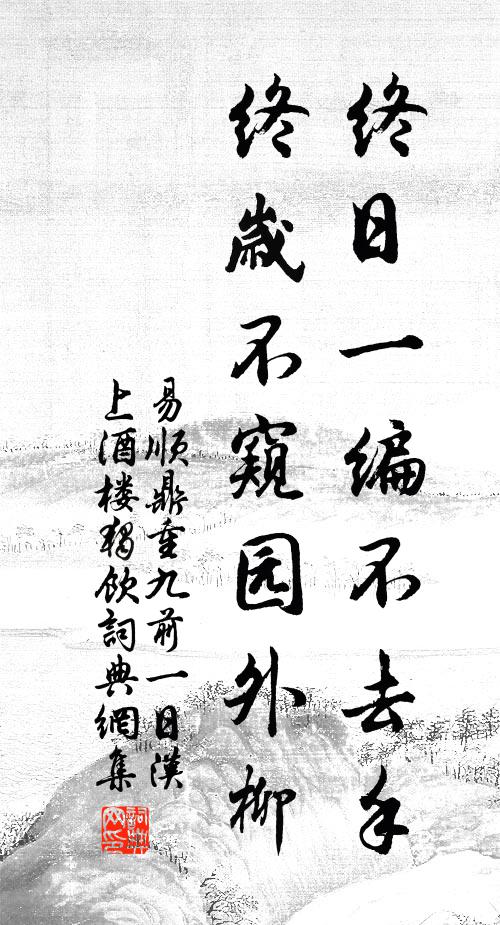 终日一编不去手
终岁不窥园外柳
易顺鼎重九前一日漢
上酒楼独饮詞典網集